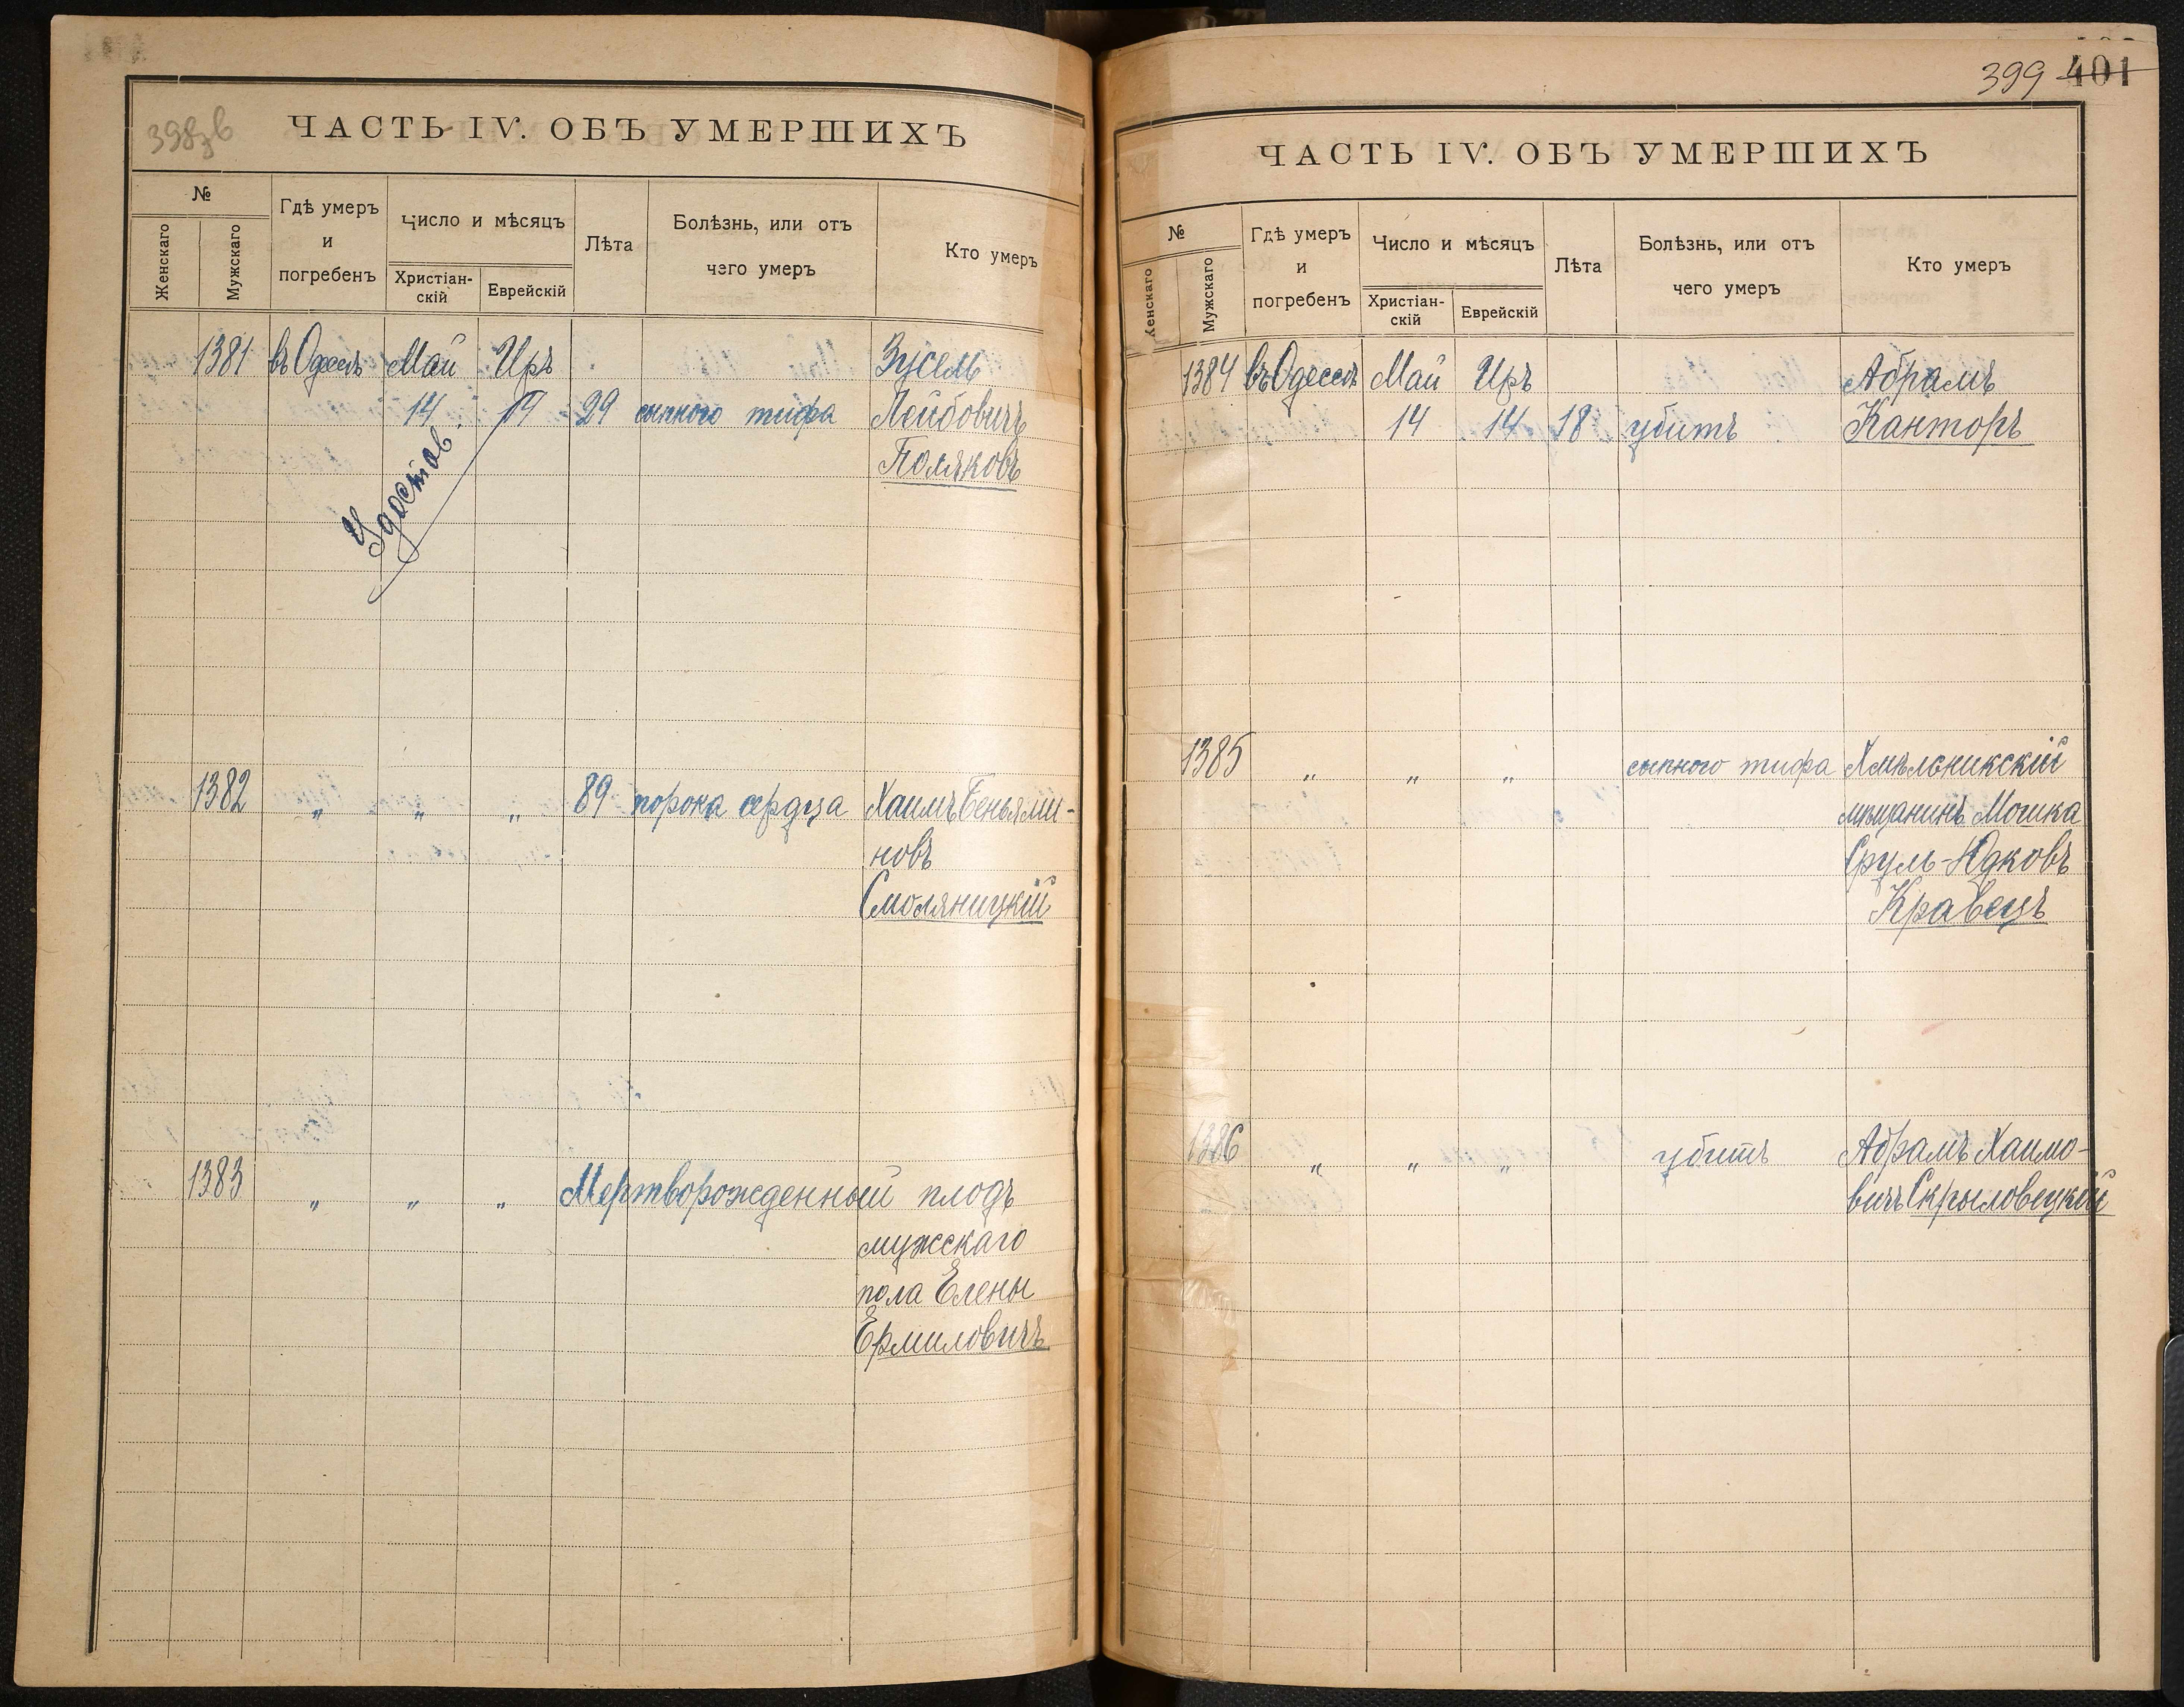 398зв
ЧАСТЬ IV. ОБЪ УМЕРШИХЪ
№
Женскаго
Мужскаго
Гдѣ умеръ
и
погребенъ
Число и мѣсяцъ
Христіан-
скій
Еврейскій
Лѣта
Болѣзнь, или отъ
чего умеръ
Кто умеръ
1381 въ Одессѣ Май Иръ Зусель
14 14 29 сыпного тифа Лейбовичъ
Поляковъ
Удостов.
1382 " " " 89 порока сердца Хаимъ Беньями-
новъ
Смоляницкій
1383 " " " Мертворожденный плодъ
мужскаго
пола Елены
Ермиловичъ
399 401
ЧАСТЬ IV. ОБЪ УМЕРШИХЪ
№
Женскаго
Мужскаго
Гдѣ умеръ
и
погребенъ
Число и мѣсяцъ
Христіан-
скій
Еврейскій
Лѣта
Болѣзнь, или отъ
чего умеръ
Кто умеръ
1384 въ Одессѣ Май Иръ Абрамъ
14 14 18 убитъ Канторъ
1385 " " " сыпного тифа Хмѣльникскій
мѣщанинъ Мошка
Сруль-Юдковъ
Кравецъ
1386 " " " убитъ Абрамъ Хаимо-
вичъ Скрыловецкій